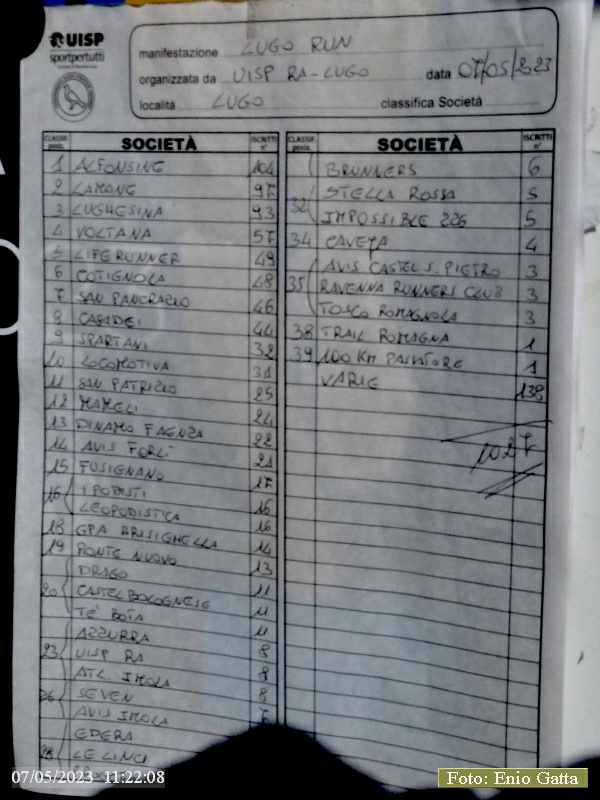 UISP
sportpertutti
manifestazione LUGO RUN
organizzata da UISP RA-LUGO data 07/05/2023
località LUGO classifica Società
CLASSIF. posiz. SOCIETÀ ISCRITTI n°
1 ALFONSINE 104
2 LAMONE 97
3 LUGHESINA 93
4 VOLTANA 57
5 LIFE RUNNER 49
6 COTIGNOLA 48
7 SAN PANCRAZIO 46
8 CASADEI 44
9 SPARTANI 32
10 LOCOMOTIVA 31
11 SAN PATRIZIO 25
12 MAMELI 24
13 DINAMO FAENZA 22
14 AVIS FORLI' 21
15 FUSIGNANO 17
16 I PODISTI 16
LEOPODISTICA 16
18 GPA BRISIGHELLA 14
19 PONTE NUOVO 13
20 DRAGO 11
CASTELBOLOGNESE 11
TE' BOTA 11
23 AZZURRA 8
UISP RA 8
ATL IMOLA 8
26 SEVEN
AVIS IMOLA
EDERA
28 LE LINCI
CLASSIF. posiz. SOCIETÀ ISCRITTI n°
BRUNNERS 6
32 STELLA ROSSA 5
IMPOSSIBLE 226 5
34 CAVEJA 4
35 AVIS CASTEL S. PIETRO 3
RAVENNA RUNNERS CLUB 3
TOSCO ROMAGNOLA 3
38 TRAIL ROMAGNA 1
39 100 KM PASSATORE 1
VARIE 138
1027
07/05/2023 11:22:08
Foto: Enio Gatta